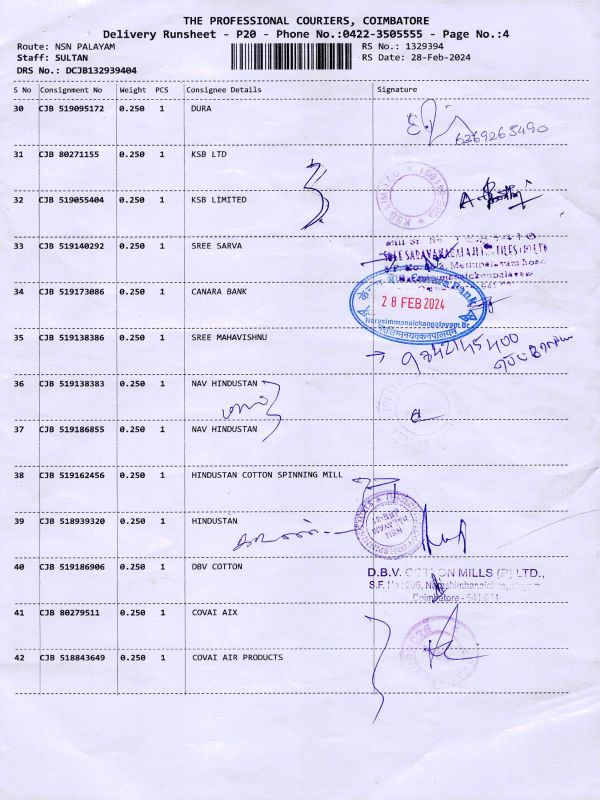 THE PROFESSIONAL COURIERS, COIMBATORE
Delivery Runsheet - P20 - Phone No.:0422-3505555 - Page No.:4
Route: NSN PALAYAM RS No.: 1329394
Staff: SULTAN RS Date: 28-Feb-2024
DRS No.: DCJB132939404
S No Consignment No Weight PCS Consignee Details Signature
30 CJB 519095172 0.250 1 DURA
6269265490
31 CJB 80271155 0.250 1 KSB LTD
32 CJB 519055404 0.250 1 KSB LIMITED
KSB LIMITED
33 CJB 519140292 0.250 1 SREE SARVA
34 CJB 519173086 0.250 1 CANARA BANK
Canara Bank
28 FEB 2024
35 CJB 519138386 0.250 1 SREE MAHAVISHNU
9842145400
36 CJB 519138383 0.250 1 NAV HINDUSTAN
37 CJB 519186855 0.250 1 NAV HINDUSTAN
38 CJB 519162456 0.250 1 HINDUSTAN COTTON SPINNING MILL
39 CJB 518939320 0.250 1 HINDUSTAN
40 CJB 519186906 0.250 1 DBV COTTON
D.B.V. COTTON MILLS (P) LTD.,
Coimbatore
41 CJB 80279511 0.250 1 COVAI AIX
42 CJB 518843649 0.250 1 COVAI AIR PRODUCTS